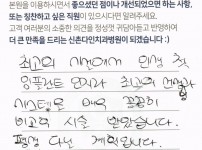 본원을 이용하시면서 좋으셨던 점이나 개선되었으면 하는 사항,
또는 칭찬하고 싶은 직원이 있으시다면 알려주세요.
고객 여러분의 소중한 의견을 정성껏 귀담아듣고 반영하여
더 큰 만족을 드리는 신촌다인치과병원이 되겠습니다 :)
최고의 선생님께 인생 첫
임플란트 인지라 최고의 선생님과
시스템으로 매우 꼼꼼히
비교의 시술 받았습니다.
평생 다닐 계획입니다.